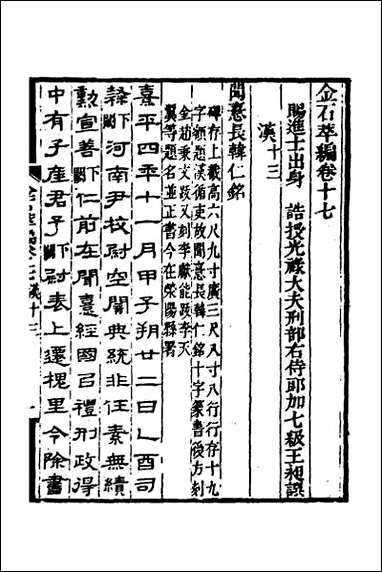 金石萃編卷十七
賜進士出身　誥授光祿大夫刑部右侍郎加七級王昶譔
漢十三
聞憙長韓仁銘
碑存上截高六尺九寸廣三尺八寸八行行存十九
字額題漢循吏故聞憙長韓仁銘十字篆書後方刻
金趙秉文跋又刻李獻能跋李天
翼等題名並正書今在滎陽縣署
熹平四年十一月甲子朔廿二日乙酉司
隸下闕河南尹校尉空闕典統非任素無績
勲宣善下闕仁前在聞憙經國以禮刑政得
中有子產君子下闕尉表上遷槐里令除書